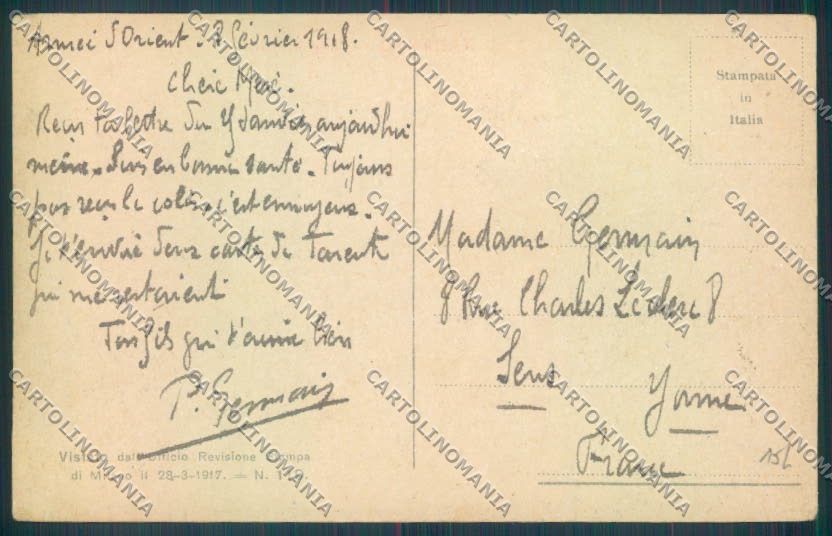 Armée d'Orient 3 Février 1918.
Chère Mère.
Reçu ta lettre du 9 Janvier aujourd'hui
même. Suis en bonne santé. Toujours
pas reçu le colis c'est ennuyeux.
Je t'envoie deux cartes de Tarente
qui me restaient
Ton fils qui t'aime bien
P. Germain
Visto dall'Ufficio Revisione Stampa
di Milano il 28-3-1917. — N.
Stampata
in
Italia
Madame Germain
8 Rue Charles Leclerc 8
Sens
Yonne
France
CARTOLINOMANIA